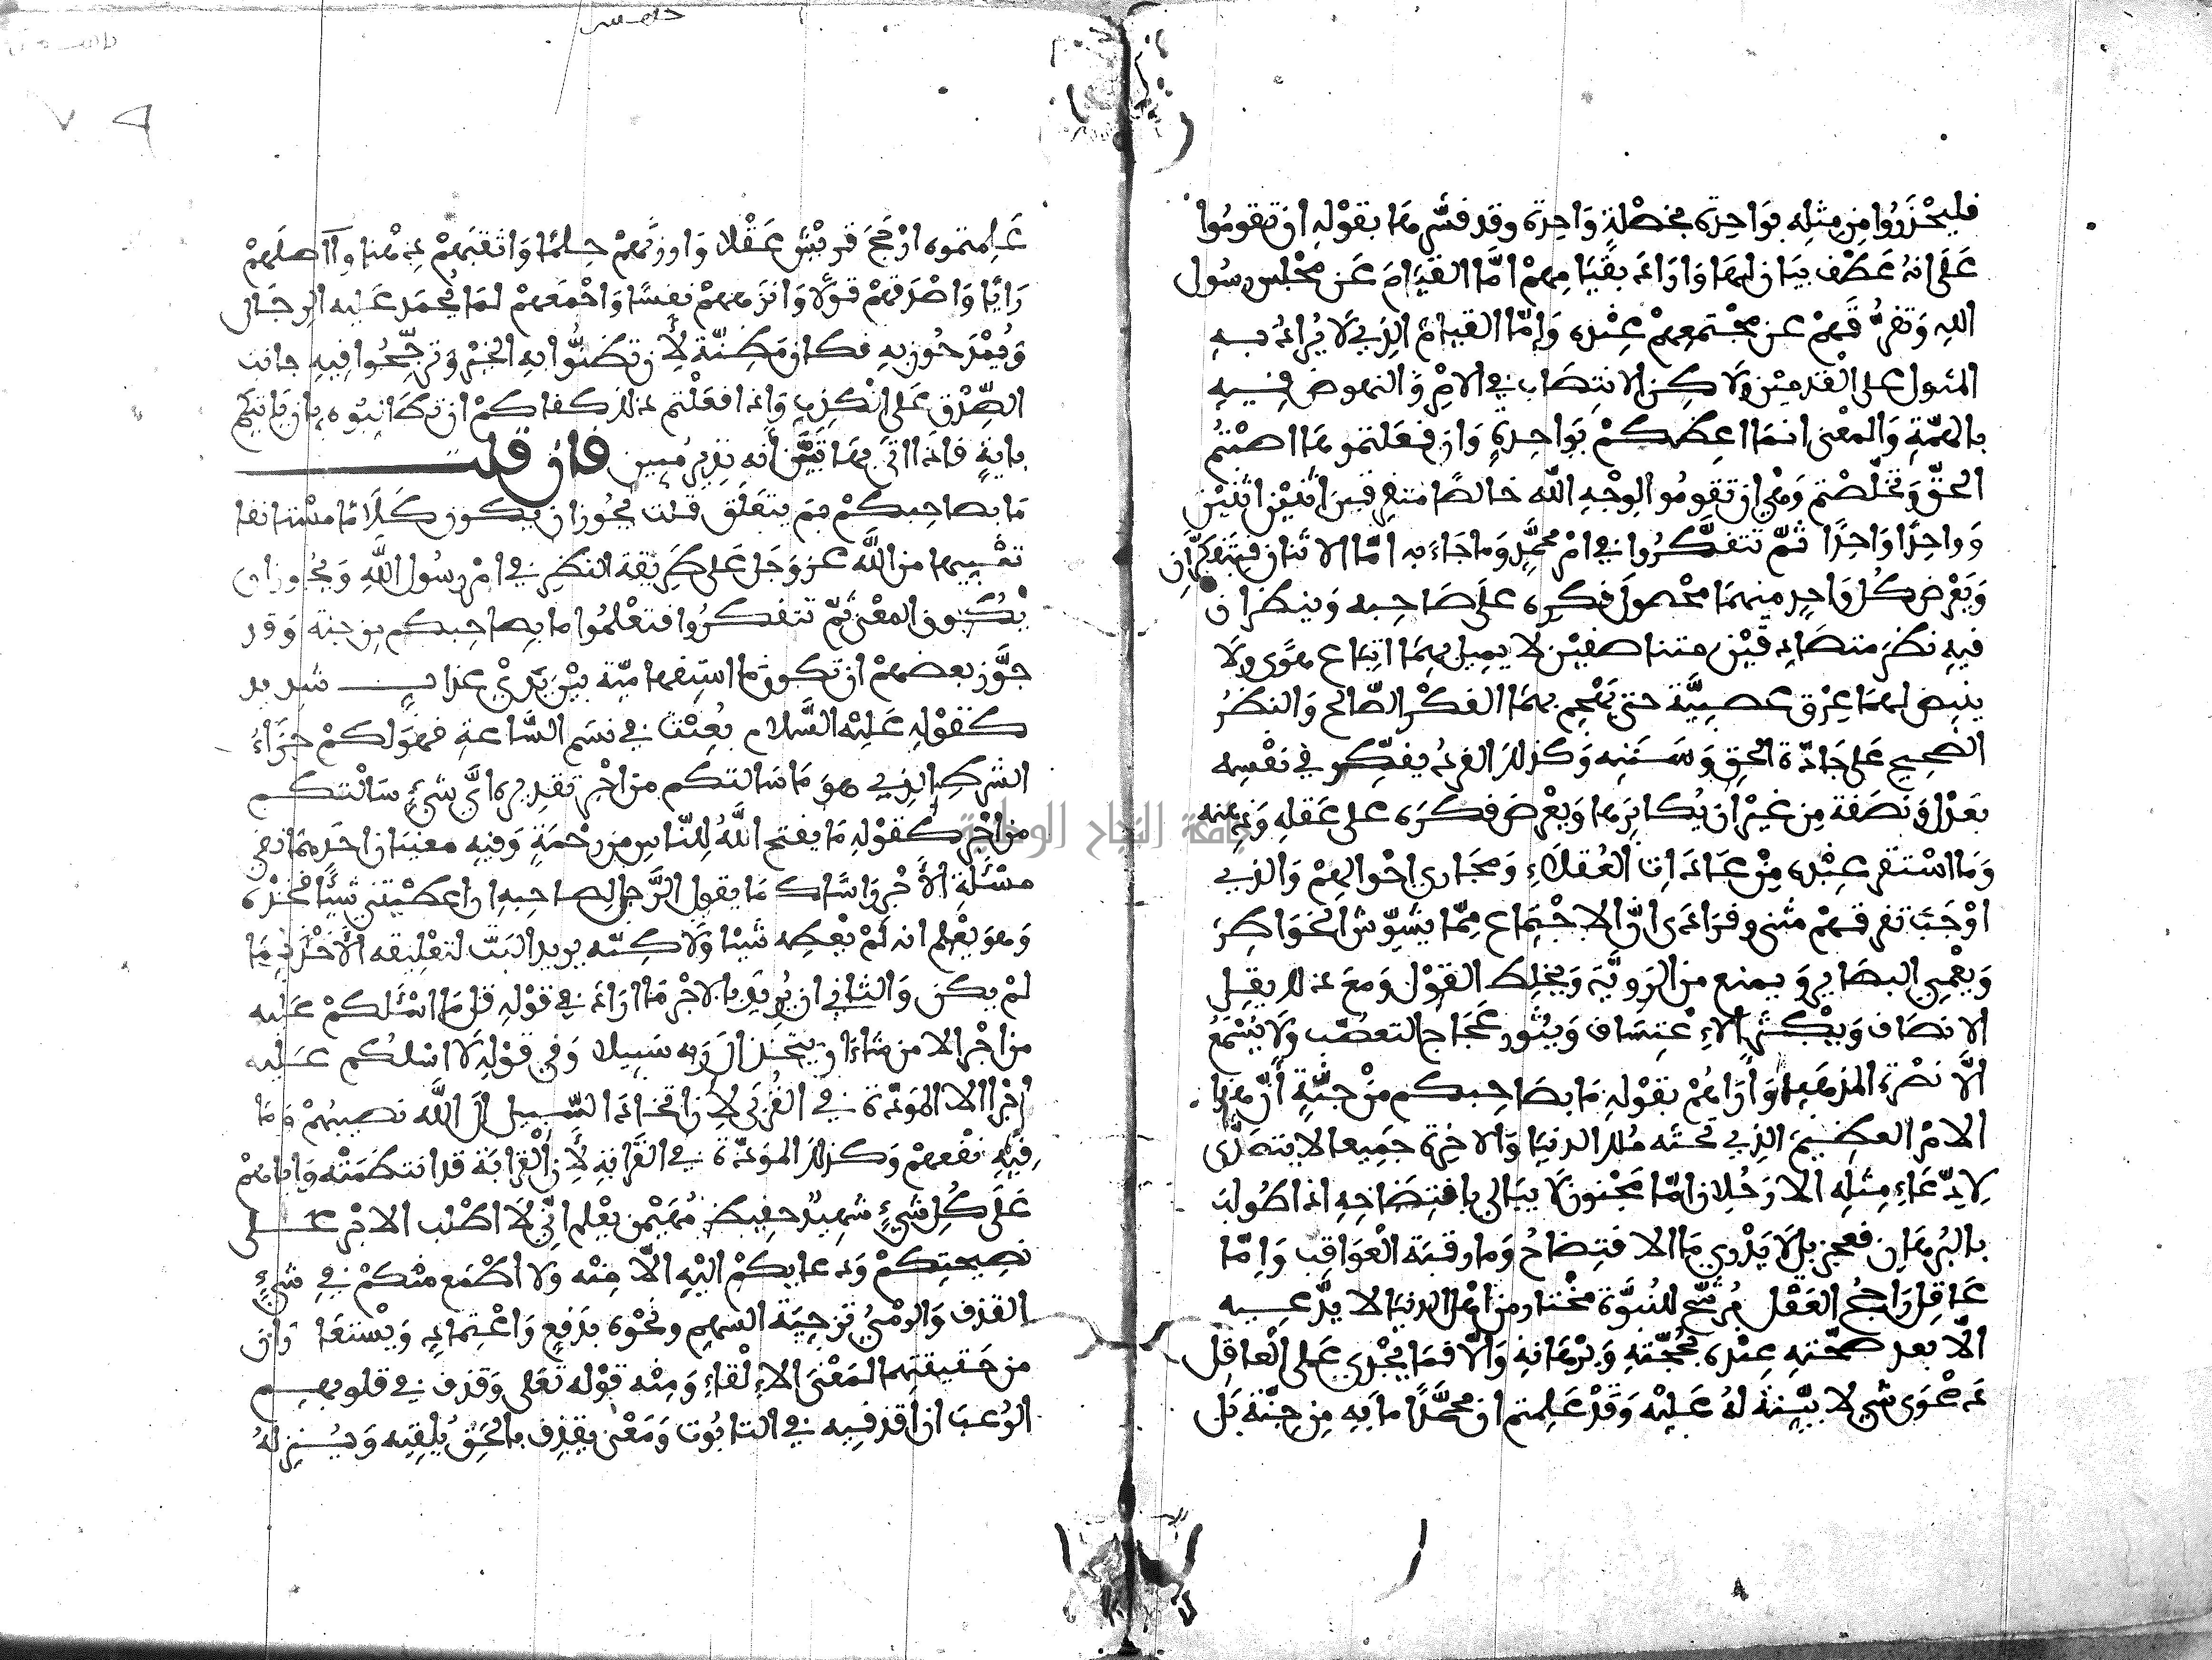 فليحذروا من مثله بواحدة بخصلة واحدة وقد فسرها بقوله ان تقوموا
على انه عطف بيان لها وارادَ بقيامهم امّا القيام عن مجلس رسول
الله وتفرّقهم عن مجتمعهم عنده وامّا القيام الذي لا يُرادُ به
المثول على القدمين ولاكن الانتصاب في الامر والنهوض فيه
بالهمّة والمعنى انما اعظكم بواحدة وان فعلتموها اصبْتُم
الحقّ وتخلّصتم وهي ان تقوموا لوجه الله خالصًا متفرقين اثنين اثنين
وواحدًا واحدًا ثمّ تتفكّروا في امر محمّد وما جاءَ به امّا الاثنان فيتفكّران
ويعرض كل واحد منهما محصول فكره على صاحبه وينظران
فيه نظر متصادقين متناصفين لا يميل بهما اتباع هوًى ولا
ينبض لهما عرق عصبيّة حتى يهجم بهما الفكر الصّالح والنظرُ
الصحيح على جادّة الحق وسننه وكذلك الفرد يفكّر في نفسه
بعدل ونصفة من غير ان يكابرها ويعرض فكره على عقله وذهنه
وما استقر عنده من عادات العقلاءِ ومجاري احوالهم والذي
اوجب تفرقهم مثنى وفرادى انّ الاجتماع ممّا يشوّش الخواطر
ويعمي البصاير ويمنع من الرويّة ويخلط القول ومع ذلك يقل
الانصاف ويكثر الاعتساف ويثور عجاج التعصّب ولا يسمعُ
الاّ نصرة المذهب واراهم بقوله ما بصاحبكم من جنّة أنّ هذا
الامر العظيم الذي تحته مُلك الدنيا والاخرة جميعا لا يتصدّى
لادّعاءِ مثله الا رجلان امّا مجنون لا يبالي بافتضاحه اذا طولب
بالبرهان فعجز بل لا يدري ما الافتضاحُ وما رقبة العواقب وامّا
عاقل راجحُ العقل مرشّح للنبوّة مختار من اهل الدنيا لا يدّعيه
الاّ بعد صحّته عنده بحجّته وبرهانه والاّ فما يُجدي على العاقل
دعوى شي لا بيّنة لهُ عليه وقد علمتم ان محمّدًا ما به من جنّة بل
علمتموه ارجح قريش عقلا واوزنهم حلمًا واثقبهم ذهنا وآصلهم
رايًا واصدقهم قولًا وانزههم نفسًا واجمعهم لما يُحمد عليه الرجال
ويُمدحون به فكان مظنّة لأن تظنّوا به الخير وترجّحوا فيه جانب
الصّدق على الكذب واذا فعلتم ذلك كفاكم ان تطالبوه بان ياتيكم
باية فاذا اتى بها تبيّن أنه نذير مُبين فان قلت
ما بصاحبكم بم يتعلّق قلت يجُوز ان يكون كلامًا مستانفا
تنبيها من الله عز وجل على طريقة النظر في امر رسول الله ويجُوز ان
يكون المعنى ثمّ تتفكروا فتعلموا ما بصاحبكم من جنة وقد
جوّز بعضهم ان تكون ما استفهاميّة بين يدي عذاب شديد
كقوله عليه السّلام بُعثت في نسم السّاعة فهو لكم جزاءُ
الشرط الذي هو ما سالتكم من اجر تقديره ايّ شيءٍ سالتكم
من اجر كقوله ما يفتح اللهُ للناس من رحمة وفيه معنيان احدهما نفي
مسئلة الأجر راسًا كما يقول الرّجل لصاحبه ان اعطيتني شيًا فخذه
وهو يعلم انه لم يعطه شيئا ولاكنّه يريد البتّ لتعليقه الأخذ بما
لم يكن والثاني ان يُريد بالاجر ما ارادَ في قوله قل ما اسئلكم عليه
من اجر الا من شاءَ ان يتخذ الى ربه سبيلا وفي قوله لا اسلكم عليه
اجرا الا المودّة في القربى لأن اتخاذ السّبيل الى الله نصيبهم وما
فيه نفعهم وكذلك المودّة في القرابة لأن القرابة قد انتظمته واياهم
على كل شيءٍ شهيدٌ حفيظ مُهيمن يعلم انّي لا اطلب الاجر على
نصيحتكم ودعايكم اليه الاّ منه ولا اطمع منكم في شيءٍ
القذف والرميُ تزجية السهم ونحوه بدفع واعتماد ويستعاران
من حقيقتهما لمعنى الالقاءِ ومنه قوله تعلى وقذف في قلوبهم
الرُعبَ ان اقذفيه في التابوت ومعنى يقذف بالحق يُلقيه وينزلهُ
جامعة النجاح الوطنية